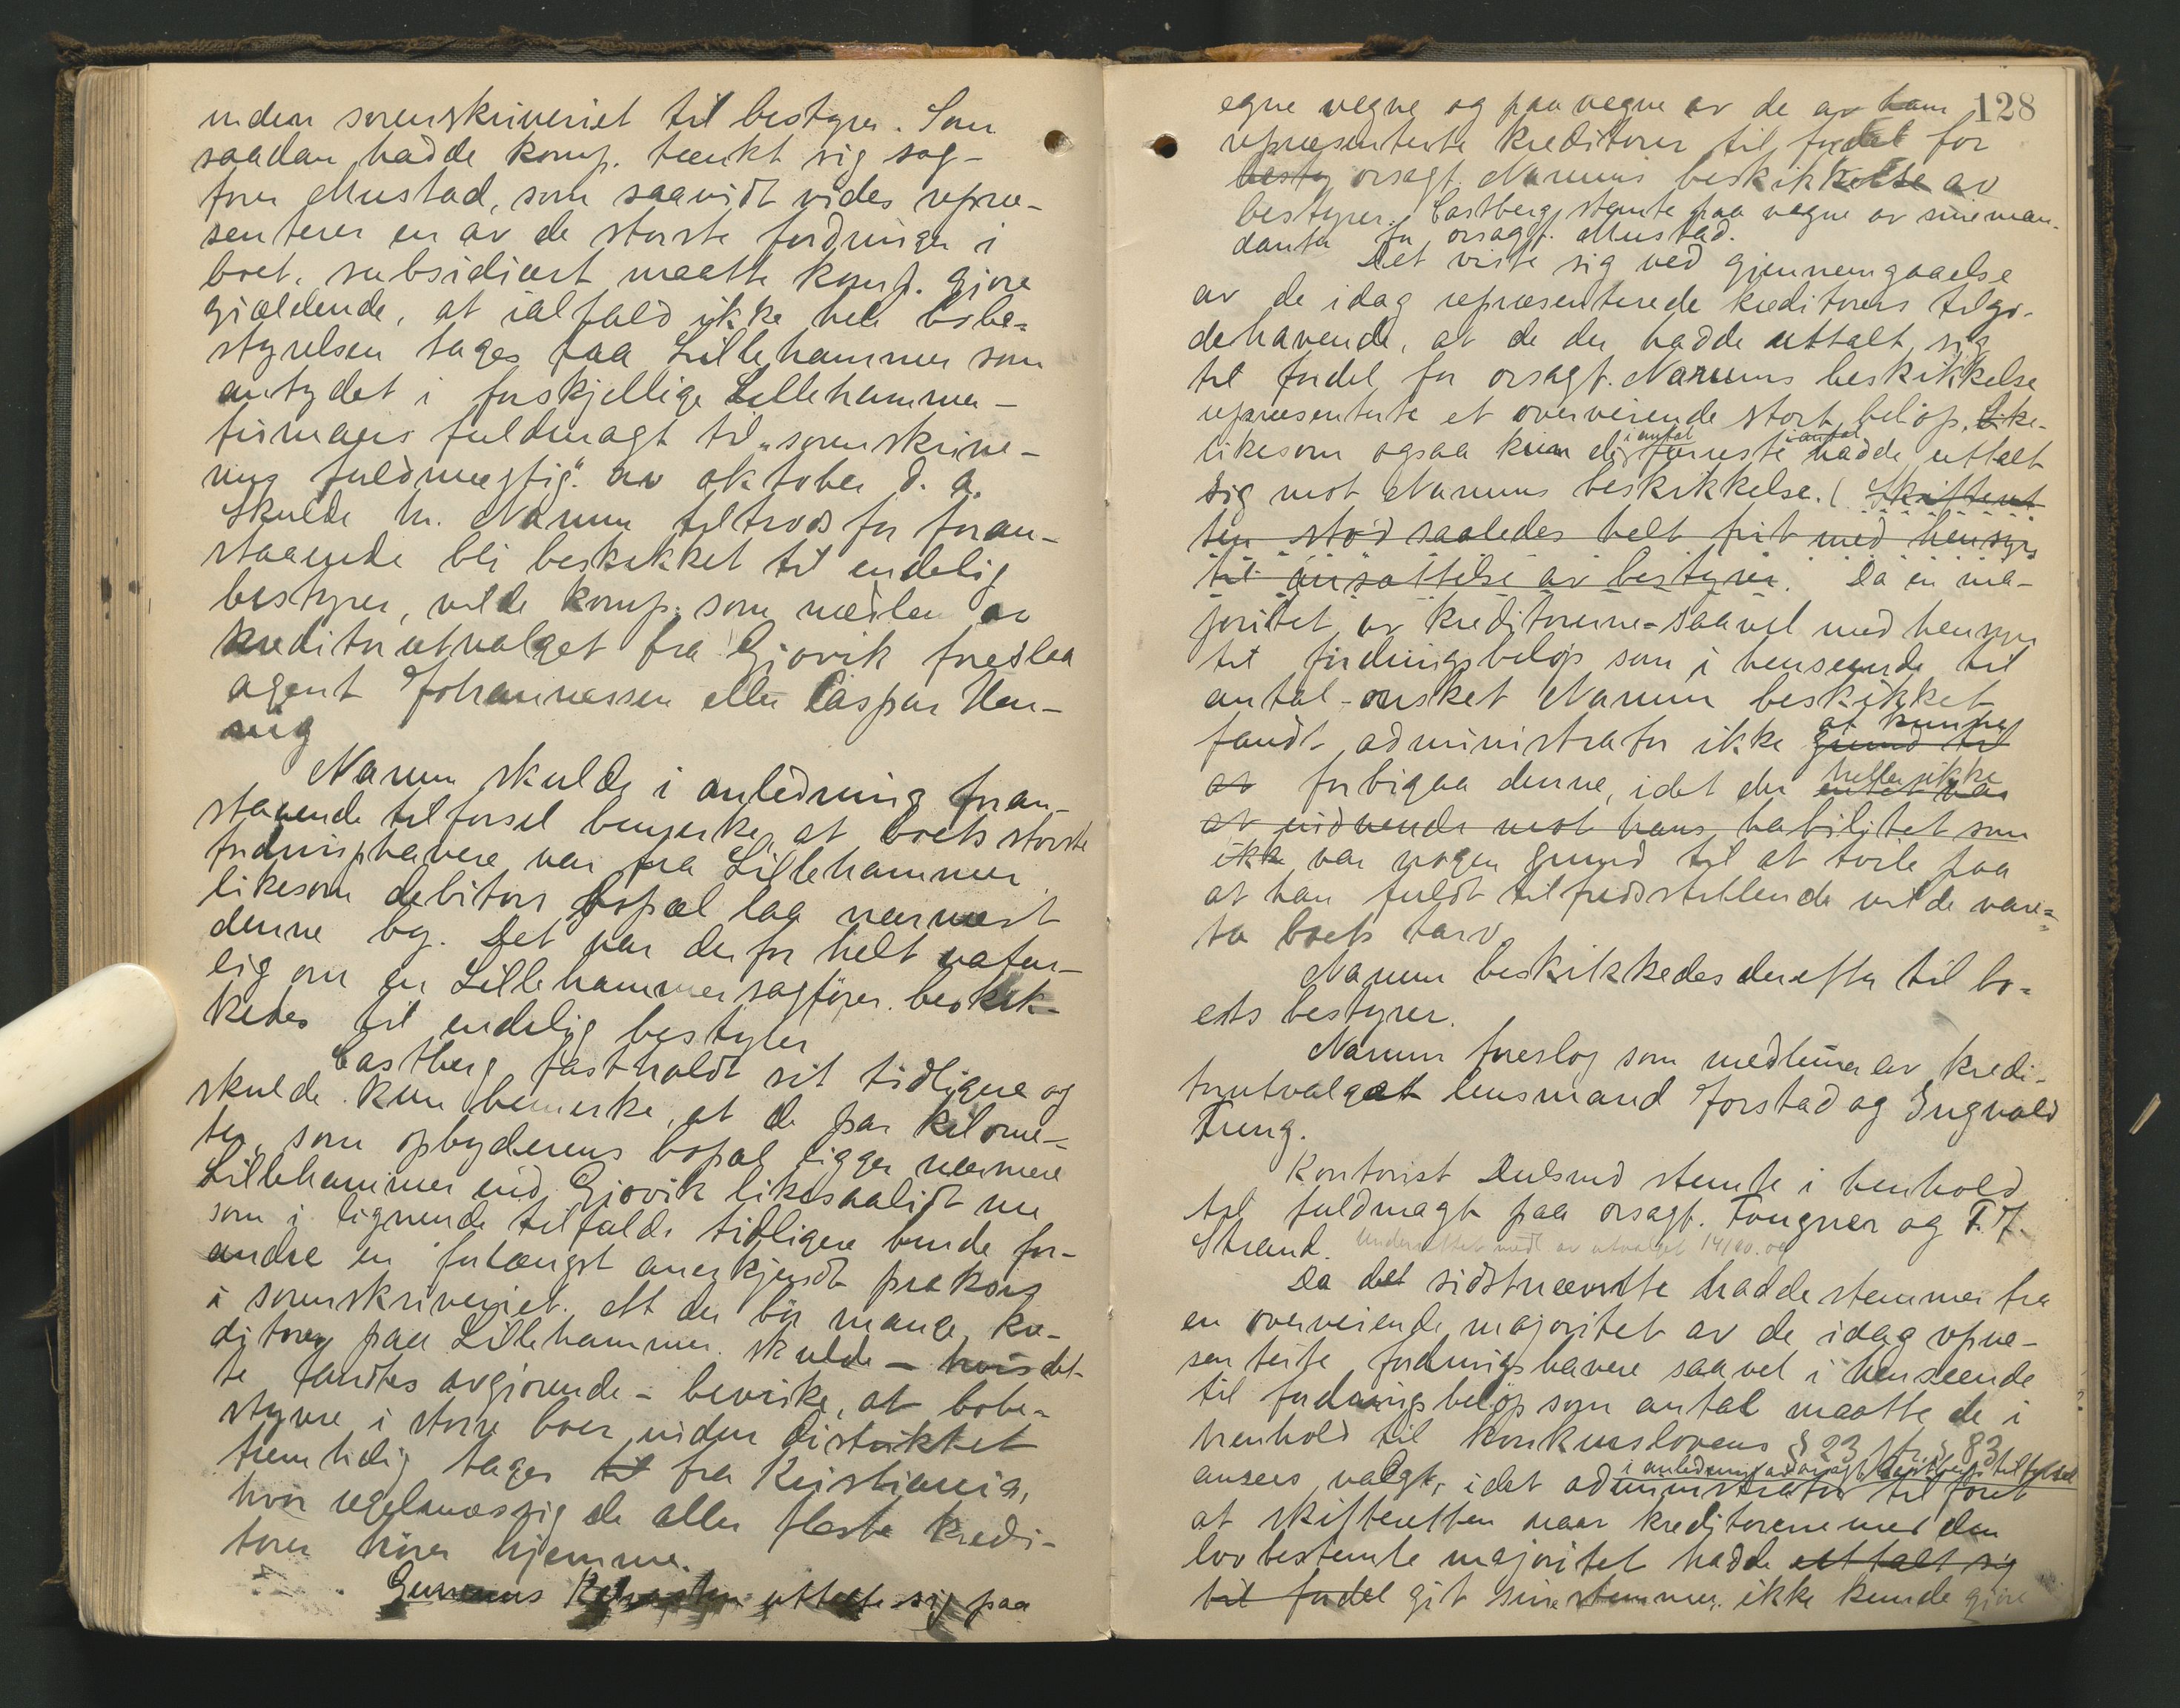 inden sorenskriveriet til bestyrer. Som
saadan hadde komp. tænkt sig sag-
fører Mustad, som saavidt vides repræ-
senterer en av de største fordringer i
boet. subsidiært maatte komp. gjøre
gjældende, at ialfald ikke hele bobe-
styrelsen tages fra Lillehammer som
antydet i forskjellige Lillehammer-
firmaers fuldmagt til "sorenskrive-
rens fuldmægtig" av oktober d. a.
Skulde hr. Narum tiltrods for foran-
staaende bli beskikket til endelig
bestyrer, vilde komp. som medlem av
kreditorutvalget fra Gjøvik foreslaa
agent Johannessen eller Caspar Hen-
nig
Narum skulde i anledning foran-
staaende tilførsel bemerke, at boets største
fordringshavere var fra Lillehammer
likesom debitors bopæl laa nærmest
denne by. Det var derfor helt natur-
lig om en Lillehammersagfører beskik-
kedes til endelig bestyrer
Castberg fastholdt sit tidligere og
skulde kun bemerke, at de par kilome-
ter, som opbyderens bopæl ligger nærmere
Lillehammer end Gjøvik likesaalidt nu
som i lignende tilfælde tidligere burde for-
andre en forlængst anerkjendt praksis
i sorenskriveriet. At der bor mange kre-
ditorer paa Lillehammer skulde – hvis det-
te fandtes avgjørende – bevirke, at bobe-
styrere i større boer inden distriktet
fremtidig tages til fra Kristiania,
hvor regelmæssig de aller fleste kredi-
torer hører hjemme.
uttalte sig paa
128
egne vegne og paa vegne av de av ham
repræsenterte kreditorer til fordel for
besty orsagf. Narums beskikkelse av
bestyrer. Castberg stemte paa vegne av sine man-
danter for orsagf. Mustad.
Det viste sig ved gjennemgaaelse
av de idag repræsenterede kreditorers tilgo-
dehavende, at de der hadde uttalt sig
til fordel for orsagf. Narums beskikkelse
repræsenterte et overveiende stort beløp, Like-
i antal i antal
likesom ogsaa kun de færreste hadde uttalt
sig mot Narums beskikkelse. ( Skifteret
ten stod saaledes helt frit med hensyn
til ansættelse av bestyrer. Da en ma-
joritet av kreditorerne – saavel med hensyn
til fordringsbeløp som i henseende til
antal – ønsket Narum beskikket
at kunne
fandt administrator ikke grund til
at forbigaa denne, idet der intet var
heller ikke
at indvende mot hans habilitet som
ikke var nogen grund til at tvile paa
at han fuldt tilfredsstillende vilde vare-
ta boets tarv.
Narum beskikkedes derefter til bo-
ets bestyrer.
Narum foreslog som medlemmer av kredi-
torutvalget lensmand Jorstad og Ingvald
Tung.
Kontorist Dulsrud stemte i henhold
til fuldmagt paa orsagf. Fougner og F. F.
Strand. Underrettet medl av utvalget 14/10.09
Da det sidstnævnte hadde stemmer fra
en overveiende majoritet av de idag repræ-
senterte fordringshavere saavel i henseende
til fordringsbeløp som antal maatte de i
henhold til konkurslovens § 23 jfr § 83
i anledning av orsagf. Castbergs tilførsel
ansees valgt, idet administrator tilføiet
at skifteretten naar kreditorerne med den
lovbestemte majoritet hadde uttalt sig
til fordel git sine stemmer. ikke kunde gjøre